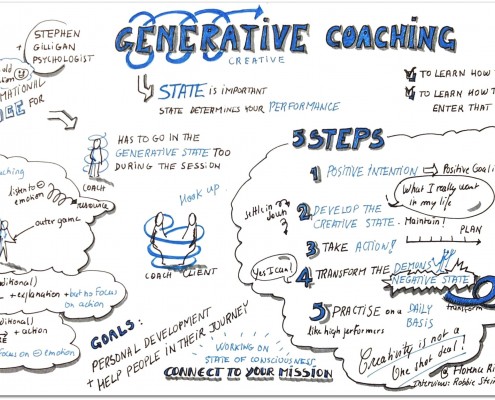 STEPHEN
+ GILLIGAN
PSYCHOLOGIST
GENERATIVE COACHING
CREATIVE
STATE IS IMPORTANT
STATE DETERMINES YOUR PERFORMANCE
TO LEARN HOW
TO LEARN HOW
ENTER THAT
FOR
HAS TO GO IN THE
GENERATIVE STATE TOO
DURING THE SESSION
COACH
listen to ⊖
emotion
resource
outer game
Hook up
COACH CLIENT
+ explanation + but no focus
on action
Focus on ⊖ emotion
GOALS:
PERSONAL DEVELOPMENT
+ HELP PEOPLE IN THEIR JOURNEY
WORKING ON
STATE OF CONSCIOUSNESS
CONNECT TO YOUR MISSION
5 STEPS
1 POSITIVE INTENTION ⇨ Positive
What I really want
in my life
settle in
2 DEVELOP THE
CREATIVE STATE. Maintain!
3 TAKE ACTION!
PLAN
Yes I can!
4 TRANSFORM THE DEMONS
NEGATIVE STATE
transform
5 PRACTISE on a DAILY
BASIS
like high performers
Creativity is not a
One shot deal!
Interview: Robbie